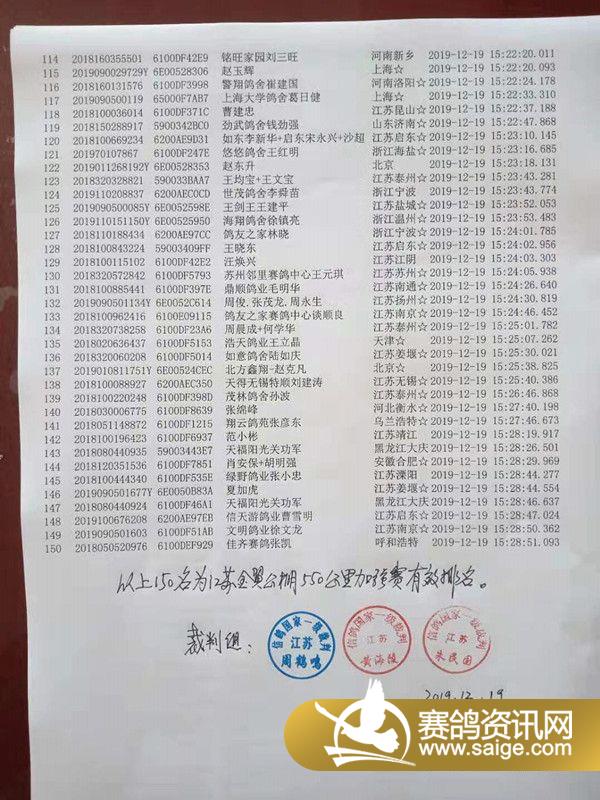 114 2018160355501 6100DF42E9 铭旺家园刘三旺 河南新乡 2019-12-19 15:22:20.011
115 2019090029729Y 6E00528306 赵玉辉 上海☆ 2019-12-19 15:22:20.093
116 2018160131576 6100DF3998 警翔鸽舍崔建国 河南洛阳☆ 2019-12-19 15:22:24.178
117 2019090500119 65000F7AB7 上海大学鸽舍葛日健 上海☆ 2019-12-19 15:22:33.310
118 2018100036014 6100DF371C 曹建忠 江苏昆山☆ 2019-12-19 15:22:37.188
119 2018150288917 5900342BC0 劲武鸽舍钱劲强 山东济南☆ 2019-12-19 15:22:47.868
120 2018100669234 6200AE9D31 如东李新华+启东宋永兴+沙超 江苏启东☆ 2019-12-19 15:23:10.145
121 201970107867 6100DF247E 悠悠鸽舍王红明 浙江海盐☆ 2019-12-19 15:23:16.685
122 2019011268192Y 6E00528353 赵东升 北京 2019-12-19 15:23:18.131
123 2018320328821 590033BAA7 王均宝+王文宝 江苏泰州☆ 2019-12-19 15:23:43.281
124 2019110208837 6200AEC0CD 世茂鸽舍李舜苗 浙江宁波 2019-12-19 15:23:43.774
125 2019090500085Y 6E0052598E 王剑王王建平 江苏盐城☆ 2019-12-19 15:23:52.053
126 2019110151150Y 6E00525950 海翔鸽舍徐镇亮 浙江温州☆ 2019-12-19 15:23:53.483
127 2018110188434 6200AE97CC 鸽友之家林晓 浙江宁波 2019-12-19 15:24:01.785
128 2018100843224 59003409FF 王晓东 江苏启东☆ 2019-12-19 15:24:02.956
129 2018100115102 6100DF42E2 汪焕兴 江苏江阴 2019-12-19 15:24:03.303
130 2018320572842 6100DF5793 苏州邻里赛鸽中心王元琪 江苏苏州☆ 2019-12-19 15:24:05.938
131 2018100885441 6100DF397E 鼎顺鸽业毛明华 江苏南通☆ 2019-12-19 15:24:26.640
132 2019090501134Y 6E0052C614 周俊,张茂龙,周永生 江苏扬州☆ 2019-12-19 15:24:30.819
133 2018100962416 6100E09115 鸽友之家赛鸽中心谈顺良 江苏南京☆ 2019-12-19 15:24:46.452
134 2018320738258 6100DF23A6 周晨成+何学华 江苏泰州☆ 2019-12-19 15:25:01.782
135 2018020636437 6100DF5153 浩天鸽业王立晶 天津☆ 2019-12-19 15:25:07.212
136 2018320060208 6100DF5014 如意鸽舍陆如庆 江苏姜堰☆ 2019-12-19 15:25:30.021
137 2019010811751Y 6E00524CEC 北方鑫翔-赵克凡 北京☆ 2019-12-19 15:25:38.825
138 2018100088927 6200AEC350 天得无锡特顺刘建涛 江苏无锡☆ 2019-12-19 15:25:40.386
139 2018100220248 6100DF398D 茂林鸽舍孙波 江苏泰州☆ 2019-12-19 15:26:46.868
140 2018030006775 6100DF8639 张绵峰 河北衡水☆ 2019-12-19 15:27:40.198
141 2018051148872 6100DF1215 翔云鸽苑张彦东 乌兰浩特☆ 2019-12-19 15:27:46.673
142 2018100196423 6100DF6937 范小彬 江苏靖江 2019-12-19 15:28:19.917
143 2018080440935 59003443E7 天福阳光关功军 黑龙江大庆 2019-12-19 15:28:26.501
144 2018120351536 6100DF7851 肖安保+胡明强 安徽合肥☆ 2019-12-19 15:28:29.969
145 2018100444340 6100DF535E 绿野鸽业张小忠 江苏溧阳 2019-12-19 15:28:44.277
146 2019090501677Y 6E0050B83A 夏加虎 江苏姜堰☆ 2019-12-19 15:28:44.554
147 2018080440924 6100DF46A1 天福阳光关功军 黑龙江大庆 2019-12-19 15:28:46.637
148 2019100676208 6200AE97EB 信天游鸽业曹雪明 江苏启东☆ 2019-12-19 15:28:47.024
149 2018090501603 6100DF51AB 文明鸽业徐文龙 江苏南京☆ 2019-12-19 15:28:50.362
150 2018050520976 6100DEF929 佳齐赛鸽张凯 呼和浩特 2019-12-19 15:28:51.093
以上150名为江苏金翼公棚550公里加强赛有效排名。
裁判组:
信鸽国家一级裁判 江苏 周鹤鸣
信鸽国家一级裁判 江苏 黄海陵
信鸽国家一级裁判 江苏 朱民国
2019.12.19
赛鸽资讯网
www.saige.com